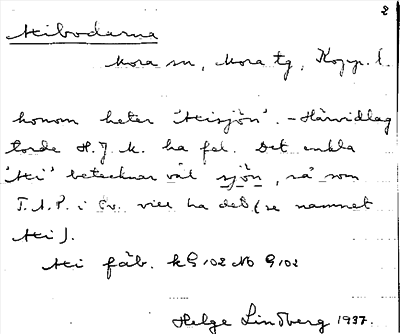 2
Åkibodarna
Mora sn, Mora tg, Kopp. l.
honom heter 'Åkisjön'. - Härvidlag
torde H.J. k. ha fel. Det enkla
'Åki' betecknar väl sjön, så som
T.A.P. i Sv. vill ha det (se namnet
Åki).
Åki fäb. kS 102 NO G 102
Helge Lindberg 1937.